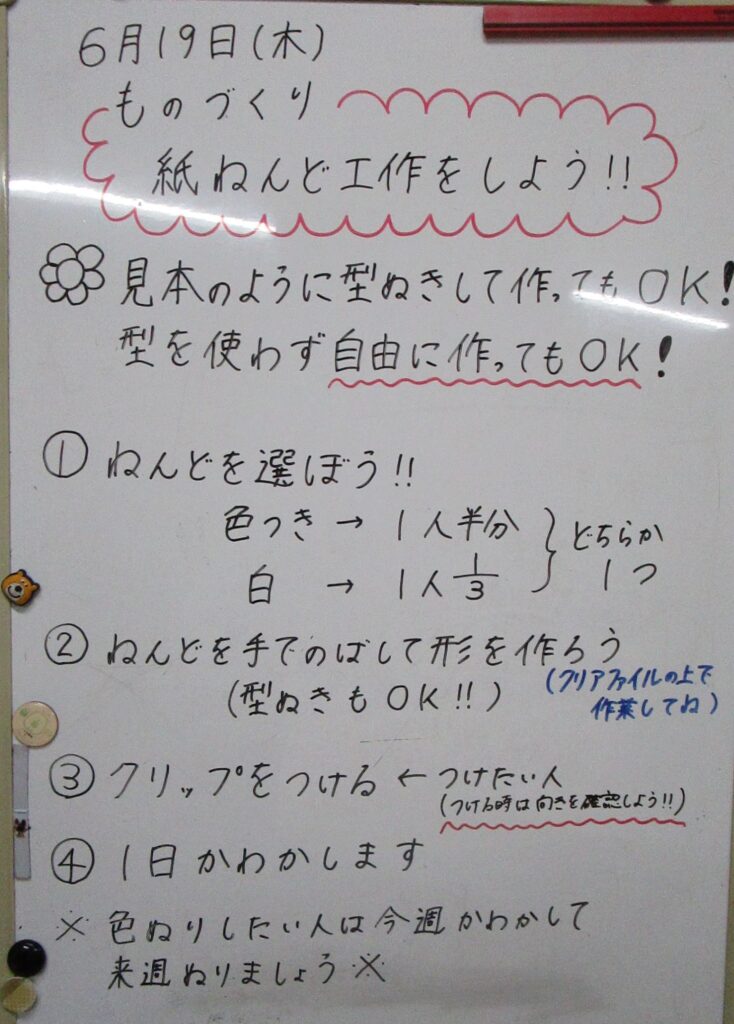 6月19日(木)
ものづくり
紙ねんど工作をしよう!!
見本のように型ぬきして作ってもOK!
型を使わず自由に作ってもOK!
① ねんどを選ぼう!!
色つき → 1人半分 } どちらか
白 → 1人 1/3 1つ
② ねんどを手でのばして形を作ろう
(型ぬきもOK!!) (クリアファイルの上で
作業してね)
③ クリップをつける ← つけたい人
(つける時は向きを確認しよう!!)
④ 1日かわかします
※ 色ぬりしたい人は今週かわかして
来週ぬりましょう※